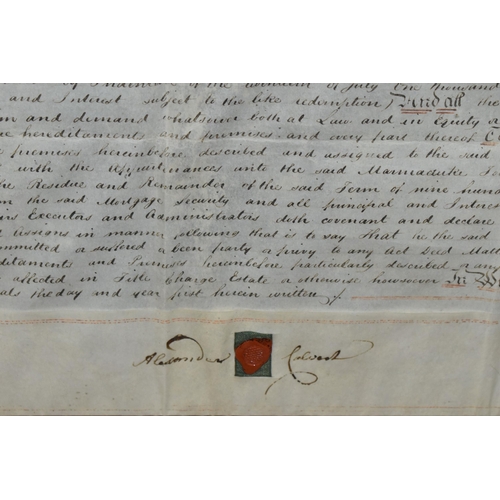 of Indenture of the of July One thousand
and Interest subject to the like redemption And all the
and demand whatsoever both at Law and in Equity
hereditaments and premises and every part thereof
premises hereinbefore described and assigned to the said
with the Appurtenances unto the said Marmaduke
the Residue and Remainder of the said Term of nine
the said Mortgage Security and all principal and Interest
Executors and Administrators doth covenant and declare
Assigns in manner following that is to say That he the said
committed or suffered or been party or privy to any Act Deed
and Premises hereinbefore particularly described or any
affected in Title Charge Estate or otherwise howsoever In
the day and year first herein written
Alexander Calvert